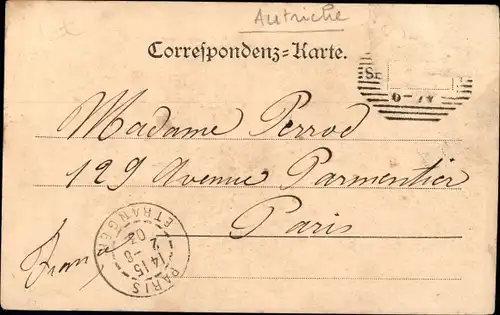 Autriche
Correspondenz=Karte.
6-7V
Madame Perrod
129 Avenue Parmentier
Paris
France
PARIS ETRANGER
14 15
-8
2
02